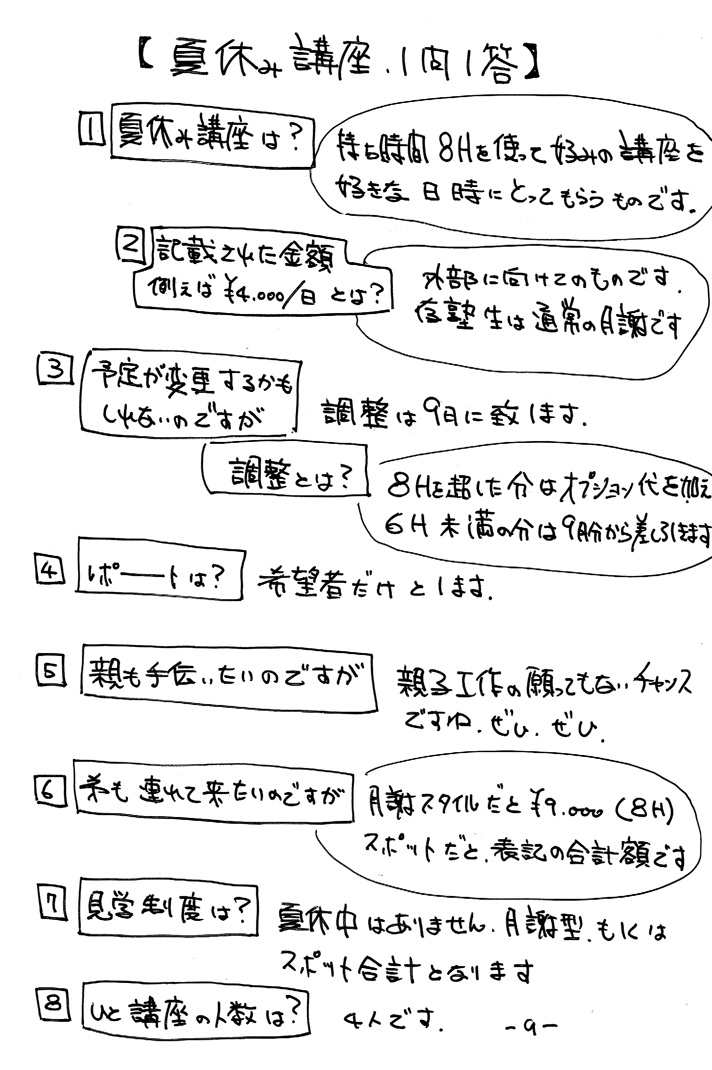 【夏休み講座、1問1答】
1 夏休み講座は？
持ち時間8Hを使って好みの講座を
好きな日時にとってもらうものです。
2 記載された金額
例えば¥4.000/日とは？
外部に向けてのものです。
在塾生は通常の月謝です
3 予定が変更するかも
しれないのですが
調整は9日に致します。
調整とは？
8Hを超した分はオプション代を加え
6H未満の分は9月分から差し引きます
4 レポートは？
希望者だけとします。
5 親も手伝いたいのですが
親子工作の願ってもないチャンス
ですね。ぜひ、ぜひ。
6 弟も連れて来たいのですが
月謝スタイルだと¥9.000(8H)
スポットだと、表記の合計額です
7 見学制度は？
夏休中はありません。月謝型、もしくは
スポット合計となります
8 ひと講座の人数は？
4人です。
-9-